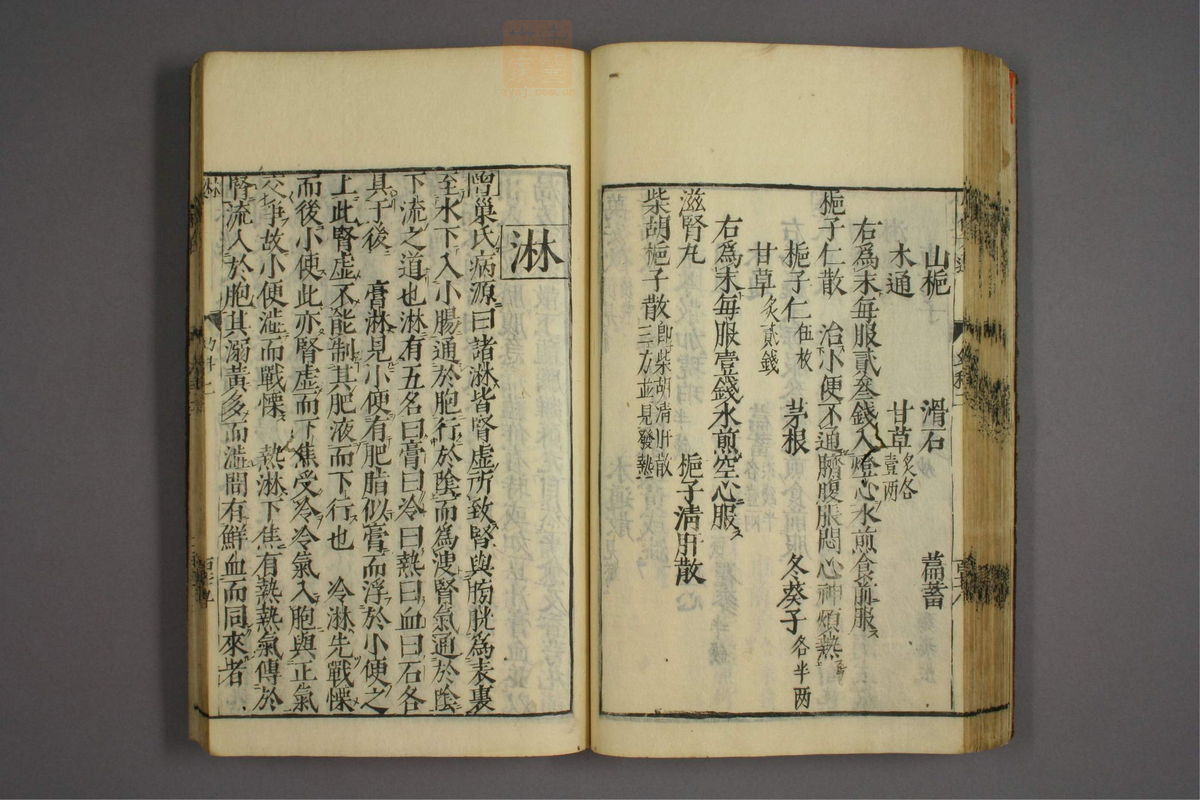 山梔 滑石 萹蓄
木通 甘草炙各壹两
右爲末每服貳叁錢入燈心水煎食前服
梔子仁散 治小便不通臍腹脹悶心神煩熱
梔子仁伍枚 茅根 冬葵子各半两
甘草炙貳錢
右爲末每服壹錢水煎空心服
滋腎丸 梔子清肝散
柴胡梔子散即柴胡清肝散三方並見發熱
淋
巢氏病源曰諸淋皆腎虛所致腎與膀胱爲表裏
至水下入小腸通於胞行於陰而爲溲腎氣通於陰
下流之道也淋有五名曰膏曰冷曰熱曰血曰石各
具于後 膏淋見小便有肥脂似膏而浮於小便之
上此腎虛不能制其肥液而下行也 冷淋先戰慄
而後小便此亦腎虛而下焦受冷冷氣入胞與正氣
交爭故小便澁而戰慄 熱淋下焦有熱熱氣傳於
腎流入於胞其溺黃多而澁間有鮮血而同來者